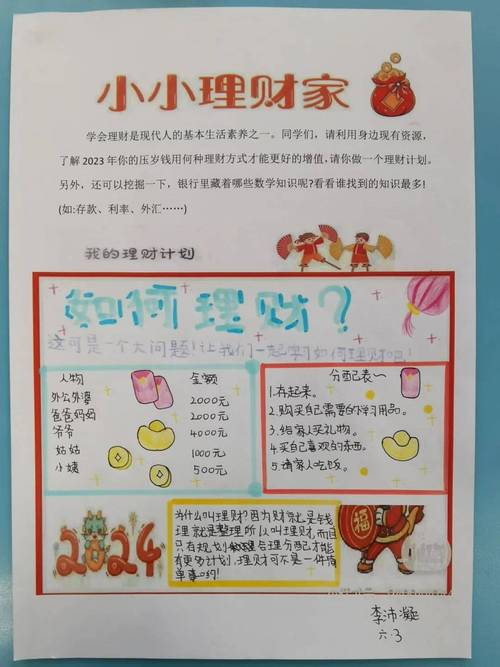 小小理财家
学会理财是现代人的基本生活素养之一。同学们，请利用身边现有资源，
了解2023年你的压岁钱用何种理财方式才能更好的增值，请你做一个理财计划。
另外，还可以挖掘一下，银行里藏着哪些数学知识呢?看看谁找到的知识最多!
(如:存款、利率、外汇……)
我的理财计划
如何理财?
这可是一个大问题!让我们一起学习如何理财吧!
人物 金额
外公外婆 2000元
爸爸妈妈 2000元
爷爷 4000元
姑姑 1000元
小姨 500元
分配表~
1.存起来。
2.购买自己需要的学习用品。
3.给家人买礼物。
4.买自己喜欢的东西。
5.请家人吃饭。
2024
为什么叫理财?因为财就是钱
理就是整理所以叫理财,而且
只有规划合理分配才能
有更多计划,理财可不是一件简
单事哟!
福
李沛凝
六.3